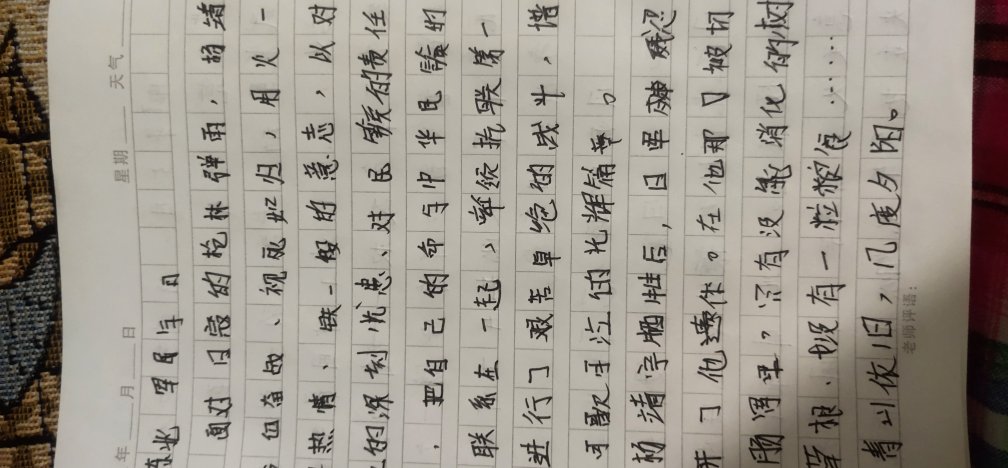 年 月 日 星期 天气
军民与日
面对日寇的枪林弹雨，杨靖
奋战、视死如归，用火一
热情、铁一般的意志，以对
的深刻忧患、对民族的责任
，把自己的命与中华民族的
联系在一起，带领抗联第一
进行了艰苦卓绝的战斗，谱
可歌可泣的光辉篇章。
杨靖宇牺牲后，日军残忍
了他遗体。在他胃口被切
肠胃里，只有没能消化的树
草根、没有一粒粮食……
青山依旧，几度夕阳。
老师评语：